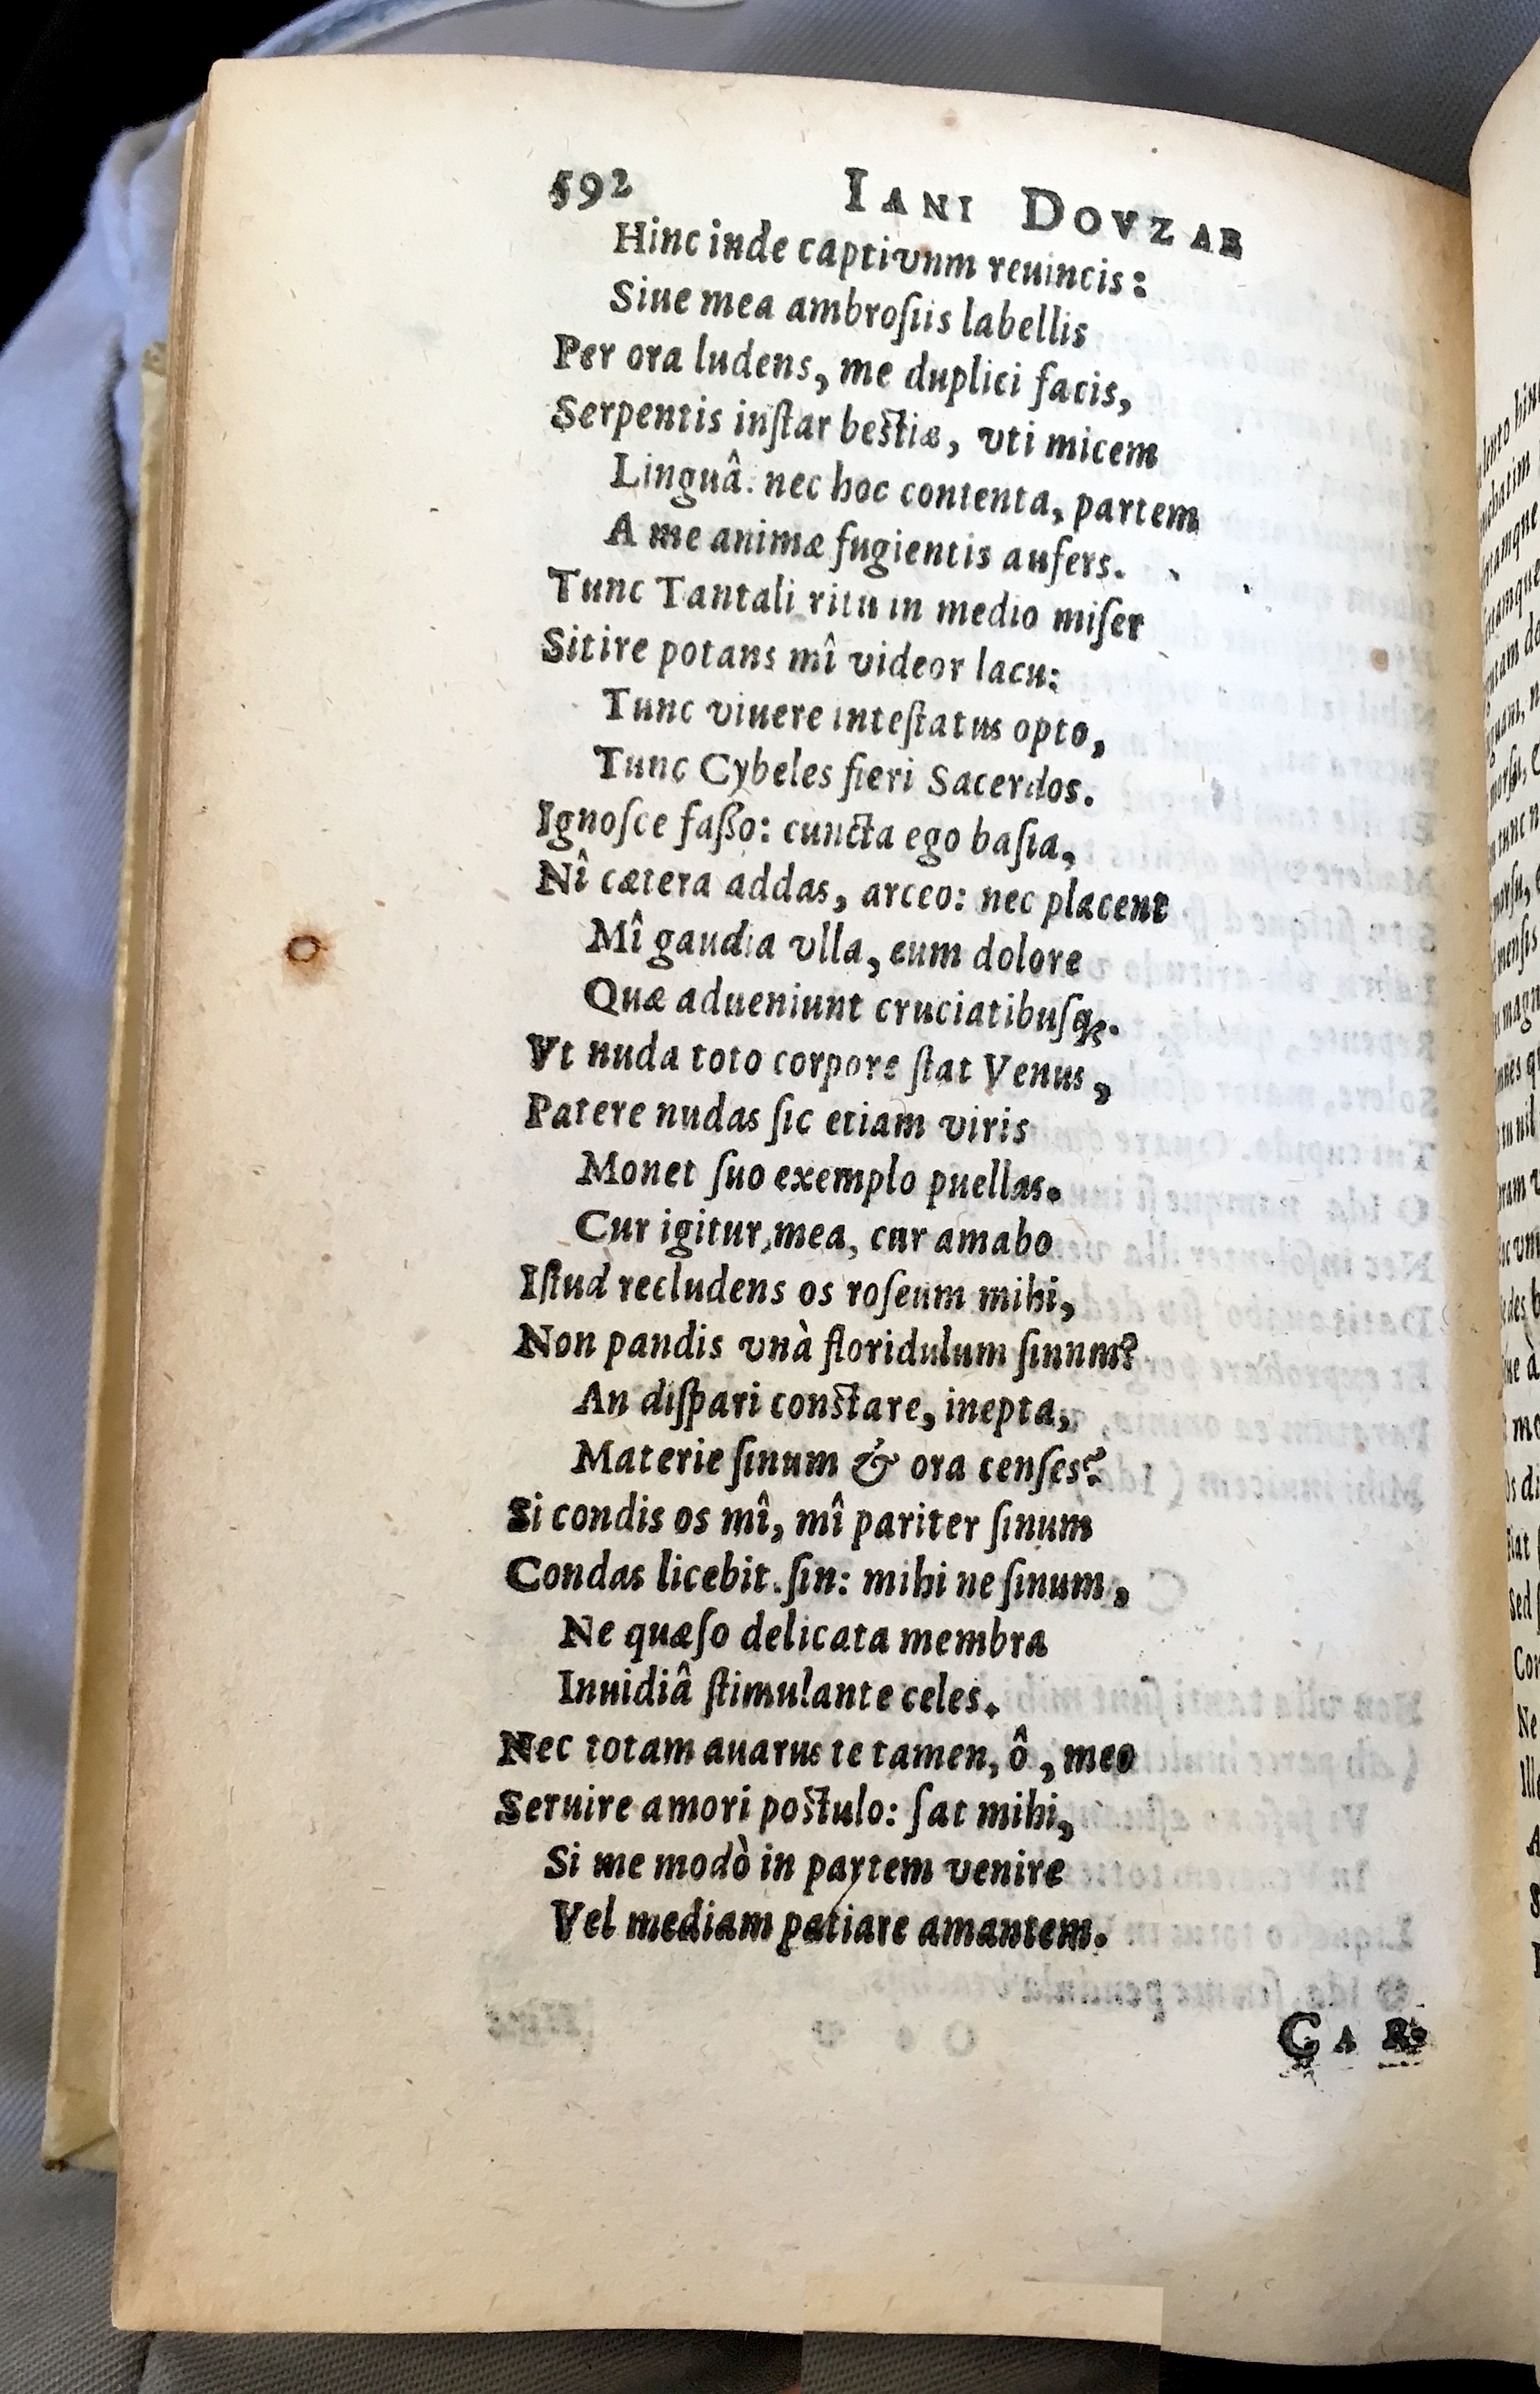 592 IANI DOVZAE
Hinc inde captivum reuincis:
Siue mea ambrosiis labellis
Per ora ludens, me duplici facis,
Serpentis instar bestiæ, vti micem
Linguâ. nec hoc contenta, partem
A me animæ fugientis aufers.
Tunc Tantali ritu in medio miser
Sitire potans mî videor lacu:
Tunc viuere intestatus opto,
Tunc Cybeles fieri Sacerdos.
Ignosce faßo: cuncta ego basia,
Nî cætera addas, arceo: nec placent
Mî gaudia vlla, cum dolore
Quæ adueniunt cruciatibusq;.
Vt nuda toto corpore stat Venus,
Patere nudas sic etiam viris
Monet suo exemplo puellas.
Cur igitur, mea, cur amabo
Istud recludens os roseum mihi,
Non pandis vnà floridulum sinum?
An dispari constare, inepta,
Materie sinum & ora censes?
Si condis os mî, mî pariter sinum
Condas licebit. sin: mihi ne sinum,
Ne quæso delicata membra
Inuidiâ stimulante celes.
Nec totam auarus te tamen, ô, meo
Seruire amori postulo: sat mihi,
Si me modò in partem venire
Vel mediam patiare amantem.
CAR-